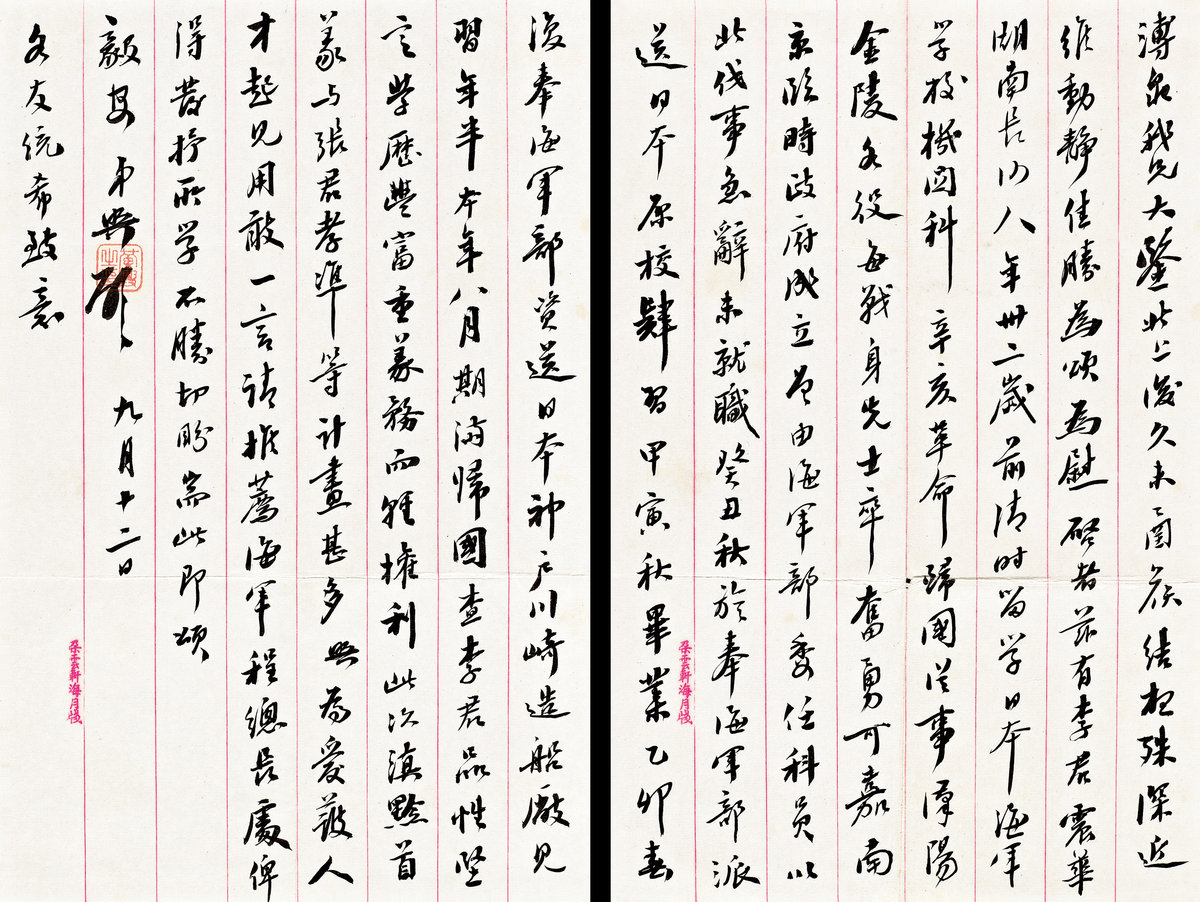 溥泉我兄大鑒北上後久未函候結想殊深近
維動靜佳勝為頌為慰啓者茲有李君震華
湖南長沙人年卅二歲前清時留學日本海軍
學校機関科辛亥革命歸國從事漢陽
金陵各役每戰身先士卒奮勇可嘉南
京臨時政府成立曾由海軍部委任科員以
北伐事急辭未就職癸丑秋於奉海軍部派
送日本原校肄習甲寅秋畢業乙卯春
復奉海軍部資送日本神戶川崎造船廠見
習年半本年八月期滿歸國查李君品性堅
定學歷豐富重義務而輕權利此次滇黔首
義与張君孝準等計畫甚多興為愛護人
才起見用敢一言請推薦海軍程總長處俾
得發抒所学不勝切盼耑此即頌
毅安弟興
九月十二日
各友統希致意
朵雲軒海月牋
朵雲軒海月牋